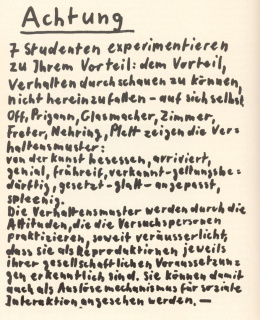 Achtung
7 Studenten experimentieren
zu Ihrem Vorteil: dem Vorteil,
Verhalten durchschauen zu können,
nicht hereinzufallen – auf sich selbst
Off, Prigann, Glasmacher, Zimmer,
Freter, Nehring, Plett zeigen die Ver=
haltensmuster:
von der Kunst besessen, arriviert,
genial, frühreif, verkannt-geltungsbe=
dürftig, gesetzt-glatt-angepasst,
spleenig.
Die Verhaltensmuster werden durch die
Attituden, die die Versuchspersonen
praktizieren, soweit veräusserlicht,
dass sie als Reproduktionen jeweils
ihrer gesellschaftlichen Voraussetzun=
gen erkenntlich sind. Sie können damit
auch als Auslösemechanismus für soziale
Interaktion angesehen werden. —